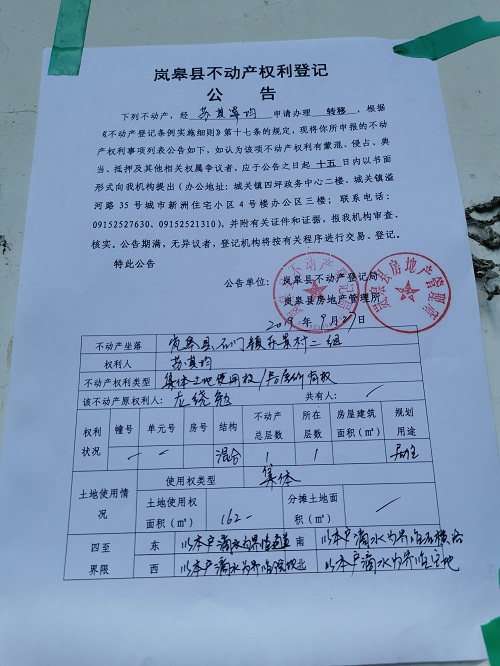 岚皋县不动产权利登记
公 告
下列不动产，经 苏其军均 申请办理 转移，根据
《不动产登记条例实施细则》第十七条的规定，现将你所申报的不动
产权利事项列表公告如下，如认为该项不动产权利有蒙混、侵占、典
当、抵押及其他相关权属争议者，应于公告之日起 十五日内以书面
形式向我机构提出（办公地址：城关镇四坪政务中心二楼、城关镇溢
河路 35 号城市新洲住宅小区 4 号楼办公区三楼；联系电话：
09152527630、09152521310），并附有关证件和证据，报我机构审查、
核实。公告期满，无异议者，登记机构将按有关程序进行交易、登记。
特此公告
公告单位：岚皋县不动产登记局
岚皋县房地产管理所
2019年9月27日
不动产坐落 岚皋县石门镇乐景村二组
权利人 苏其均
不动产权利类型 集体土地使用权/房屋所有权
该不动产原权利人： 左绕勉 共有人： /
权利状况 幢号 单元号 房号 结构 不动产总层数 所在层数 房屋建筑面积（㎡） 规划用途
一 一 混合 1 1 / 居住
土地使用情况 使用权类型 集体
土地使用权面积（㎡） 162 分摊土地面积（㎡） /
四至界限 东 以本户滴水为界临 南 以本户滴水为界临
西 以本户滴水为界临 北 以本户滴水为界临空地